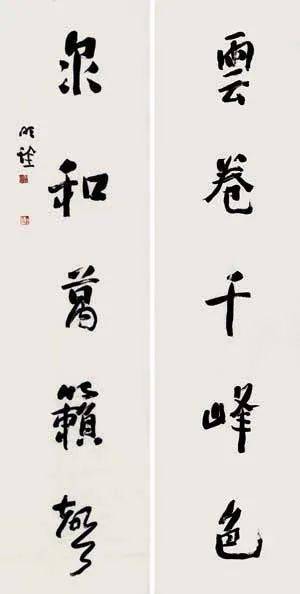 雲卷千峰色
泉和萬籟聲
明詮